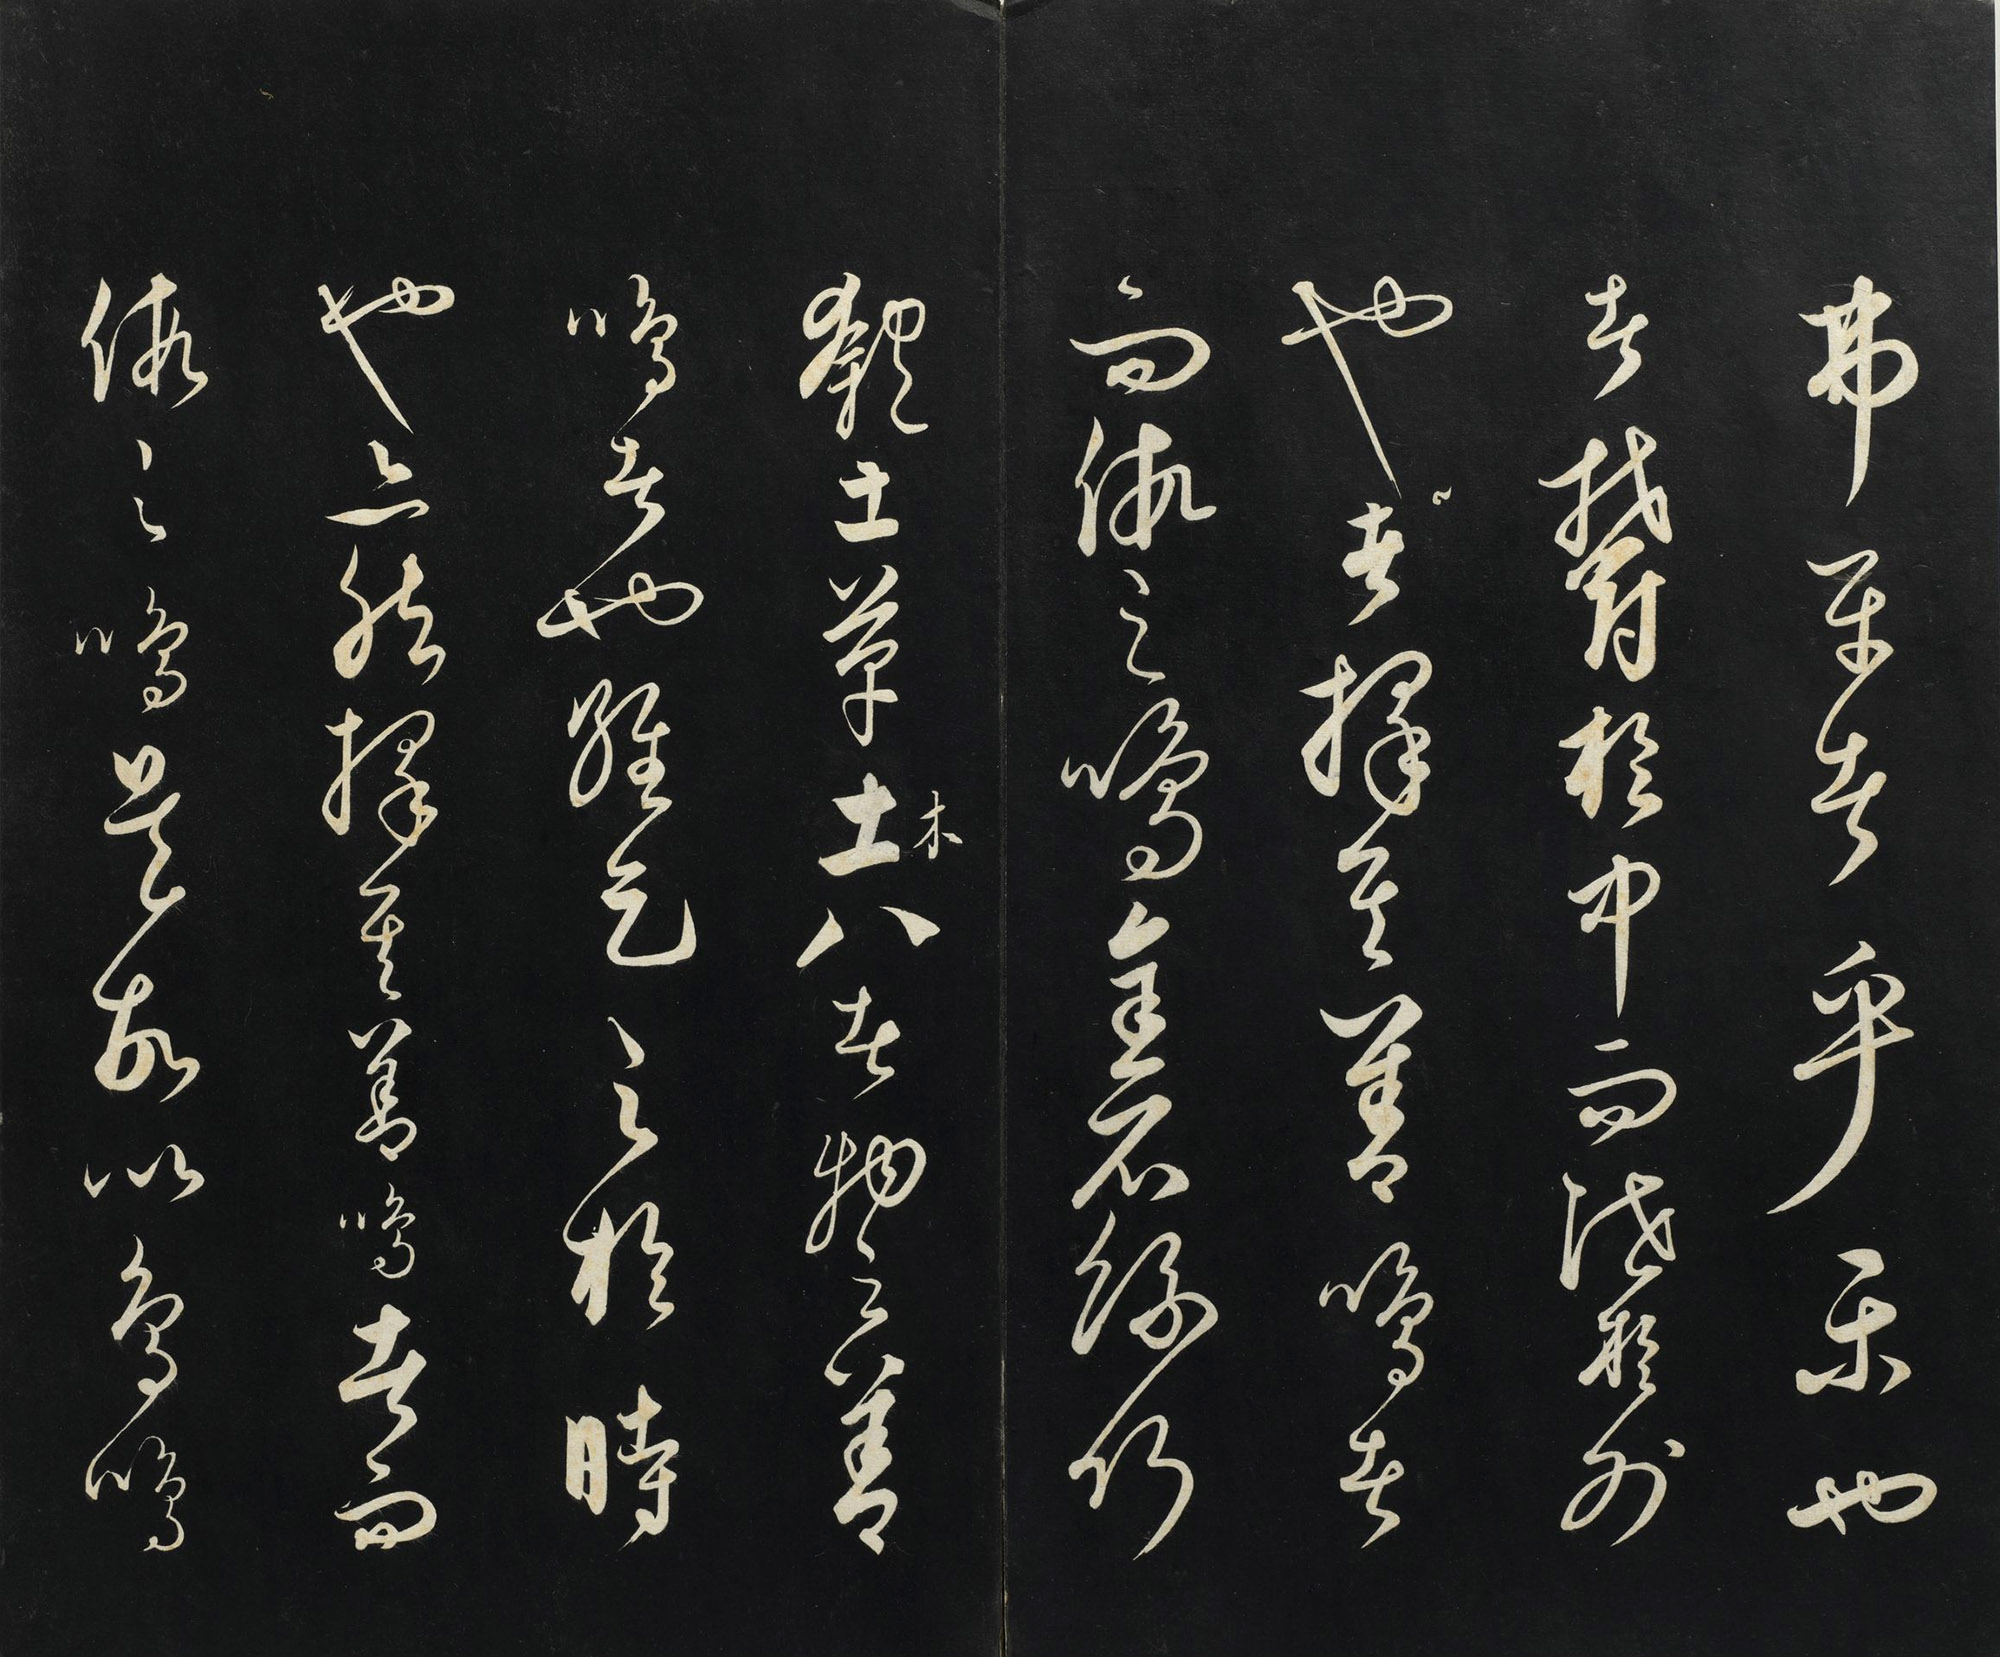 弗平者乎樂也
者鬱於中而泄於外
也者擇其善鳴者
而假之鳴金石絲竹
匏土革土木八者物之善
鳴者也維天之於時
也亦然擇其善鳴者而
假之鳴是故以鳥鳴